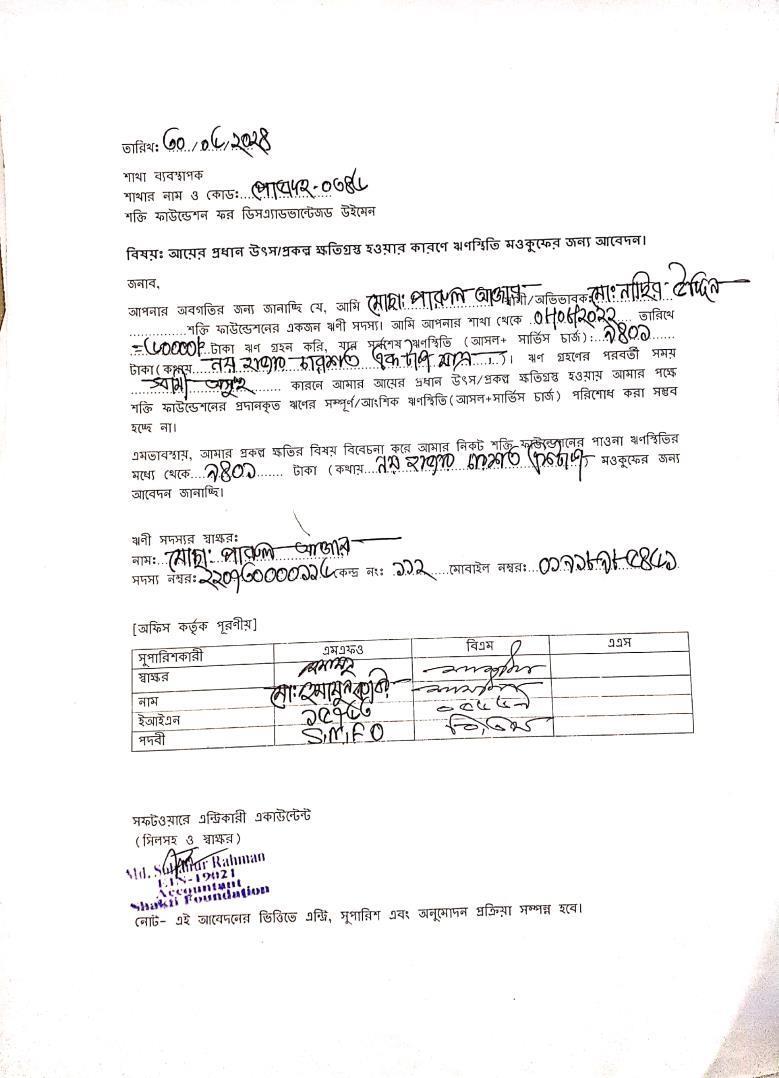 তারিখ: ৩০/০৫/২০২৪
শাখা ব্যবস্থাপক
শাখার নাম ও কোড:
শক্তি ফাউন্ডেশন ফর ডিসএ্যাডভান্টেজড উইমেন
বিষয়: আয়ের প্রধান উৎস/প্রকল্প ক্ষতিগ্রস্থ হওয়ার কারণে ঋণস্থিতি মওকুফের জন্য আবেদন।
জনাব,
আপনার অবগতির জন্য জানাচ্ছি যে, আমি মোছা: পারুল আক্তার স্বামী/অভিভাবক: মো: নাছির উদ্দিন
শক্তি ফাউন্ডেশনের একজন ঋণী সদস্য। আমি আপনার শাখা থেকে তারিখে
=৫০০০০/ টাকা ঋণ গ্রহন করি, যার সর্বশেষ ঋণস্থিতি (আসল+ সার্ভিস চার্জ): ৯৪০১
টাকা (কথায় নয় হাজার চারশত এক টাকা মাত্র )। ঋণ গ্রহণের পরবর্তী সময়
স্বামী অসুস্থ কারনে আমার আয়ের প্রধান উৎস/প্রকল্প ক্ষতিগ্রস্থ হওয়ায় আমার পক্ষে
শক্তি ফাউন্ডেশনের প্রদানকৃত ঋণের সম্পূর্ণ/আংশিক ঋণস্থিতি (আসল+সার্ভিস চার্জ) পরিশোধ করা সম্ভব
হচ্ছে না।
এমতাবস্থায়, আমার প্রকল্প ক্ষতির বিষয় বিবেচনা করে আমার নিকট শক্তি ফাউন্ডেশনের পাওনা ঋণস্থিতির
মধ্যে থেকে ৯৪০১ টাকা (কথায় নয় হাজার চারশত ) মওকুফের জন্য
আবেদন জানাচ্ছি।
ঋণী সদস্যর স্বাক্ষর:
নাম: মোছা: পারুল আক্তার
সদস্য নম্বর: কেন্দ্র নং: ১১২ মোবাইল নম্বর:
[অফিস কর্তৃক পূরণীয়]
সুপারিশকারী এমএফও বিএম এএস
স্বাক্ষর
নাম মো: হুমায়ুন কবীর
ইআইএন
পদবী S.M.F.O বি,এম
সফটওয়ারে এন্ট্রিকারী একাউন্টেন্ট
(সিলসহ ও স্বাক্ষর)
Md. Rahman
EIN-19021
Accountant
Shakti Foundation
নোট- এই আবেদনের ভিত্তিতে এন্ট্রি, সুপারিশ এবং অনুমোদন প্রক্রিয়া সম্পন্ন হবে।